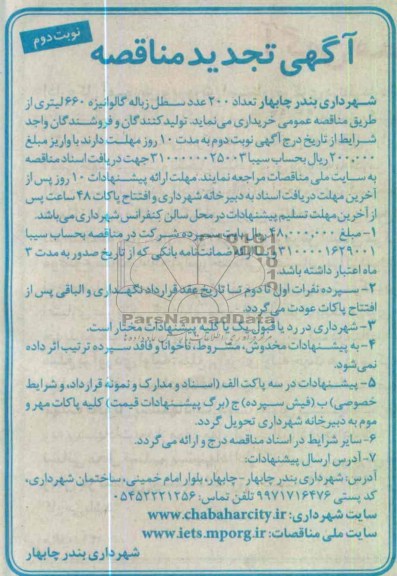 نوبت دوم
آگهی تجدید مناقصه
شهرداری بندر چابهار تعداد ۲۰۰ عدد سطل زباله گالوانیزه ۶۶۰ لیتری از
طریق مناقصه عمومی خریداری می‌نماید. تولیدکنندگان و فروشندگان واجد
شرایط از تاریخ درج آگهی نوبت دوم به مدت ۱۰ روز مهلت دارند با واریز مبلغ
۲۰۰,۰۰۰ ریال بحساب سیبا ۳۱۰۰۰۰۰۰۲۵۰۰۳ جهت دریافت اسناد مناقصه
به سایت ملی مناقصات مراجعه نمایند. مهلت ارائه پیشنهادات ۱۰ روز پس از
آخرین مهلت دریافت اسناد به دبیرخانه شهرداری و افتتاح پاکات ۴۸ ساعت پس
از آخرین مهلت تسلیم پیشنهادات در محل سالن کنفرانس شهرداری می‌باشد.
۱- مبلغ ۴۸,۰۰۰,۰۰۰ ریال بابت سپرده شرکت در مناقصه بحساب سیبا
۳۱۰۰۰۰۱۶۲۹۰۰۱ ضمانت‌نامه بانکی که از تاریخ صدور به مدت ۳
ماه اعتبار داشته باشد.
۲- سپرده نفرات اول تا دوم تا تاریخ عقد قرارداد نگهداری و الباقی پس از
افتتاح پاکات عودت می‌گردد.
۳- شهرداری در رد یا قبول یک یا کلیه پیشنهادات مختار است.
ParsNamadData
۴- به پیشنهادات مخدوش، مشروط، ناخوانا و فاقد سپرده ترتیب اثر داده
نمی‌شود.
۵- پیشنهادات در سه پاکت الف (اسناد و مدارک و نمونه قرارداد، و شرایط
خصوصی) ب (فیش سپرده) ج (برگ پیشنهادات قیمت) کلیه پاکات مهر و
موم به دبیرخانه شهرداری تحویل گردد.
۶- سایر شرایط در اسناد مناقصه درج و ارائه می‌گردد.
۷- آدرس ارسال پیشنهادات:
آدرس: شهرداری بندر چابهار - چابهار، بلوار امام خمینی، ساختمان شهرداری،
کد پستی ۹۹۷۱۷۱۶۴۷۶ تلفن تماس: ۰۵۴۵۲۲۲۱۲۵۶
سایت شهرداری: www.chabaharcity.ir
سایت ملی مناقصات: www.iets.mporg.ir
شهرداری بندر چابهار